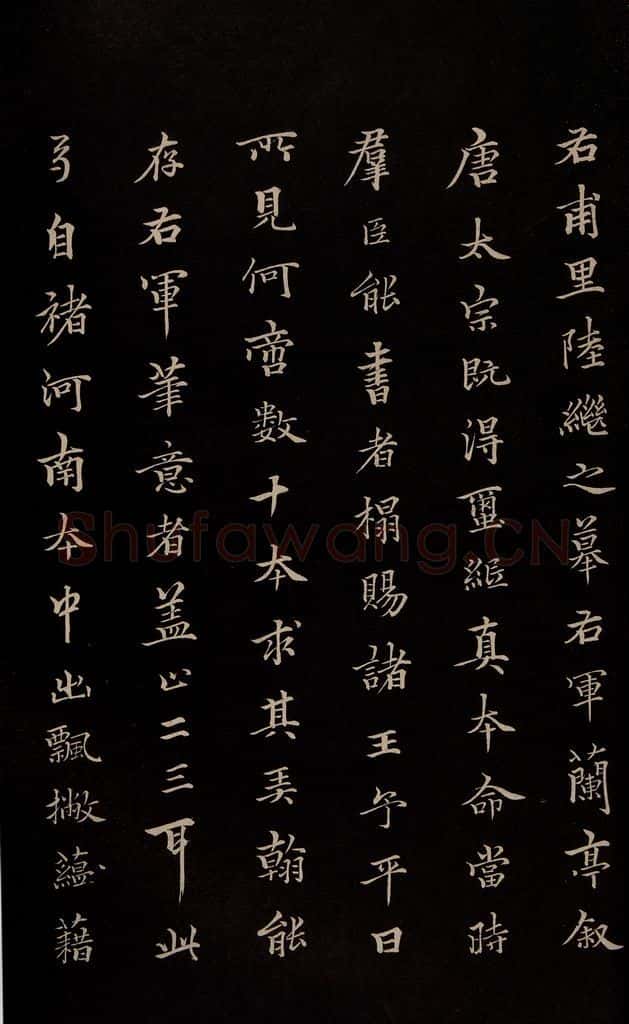 右甫里陸繼之摹右軍蘭亭叙
唐太宗既得璽紙真本命當時
羣臣能書者搨賜諸王予平日
所見何啻數十本求其美翰能
存右軍筆意者盖止二三耳此
弓自褚河南本中出飄撇蘊藉
Shufawang.CN